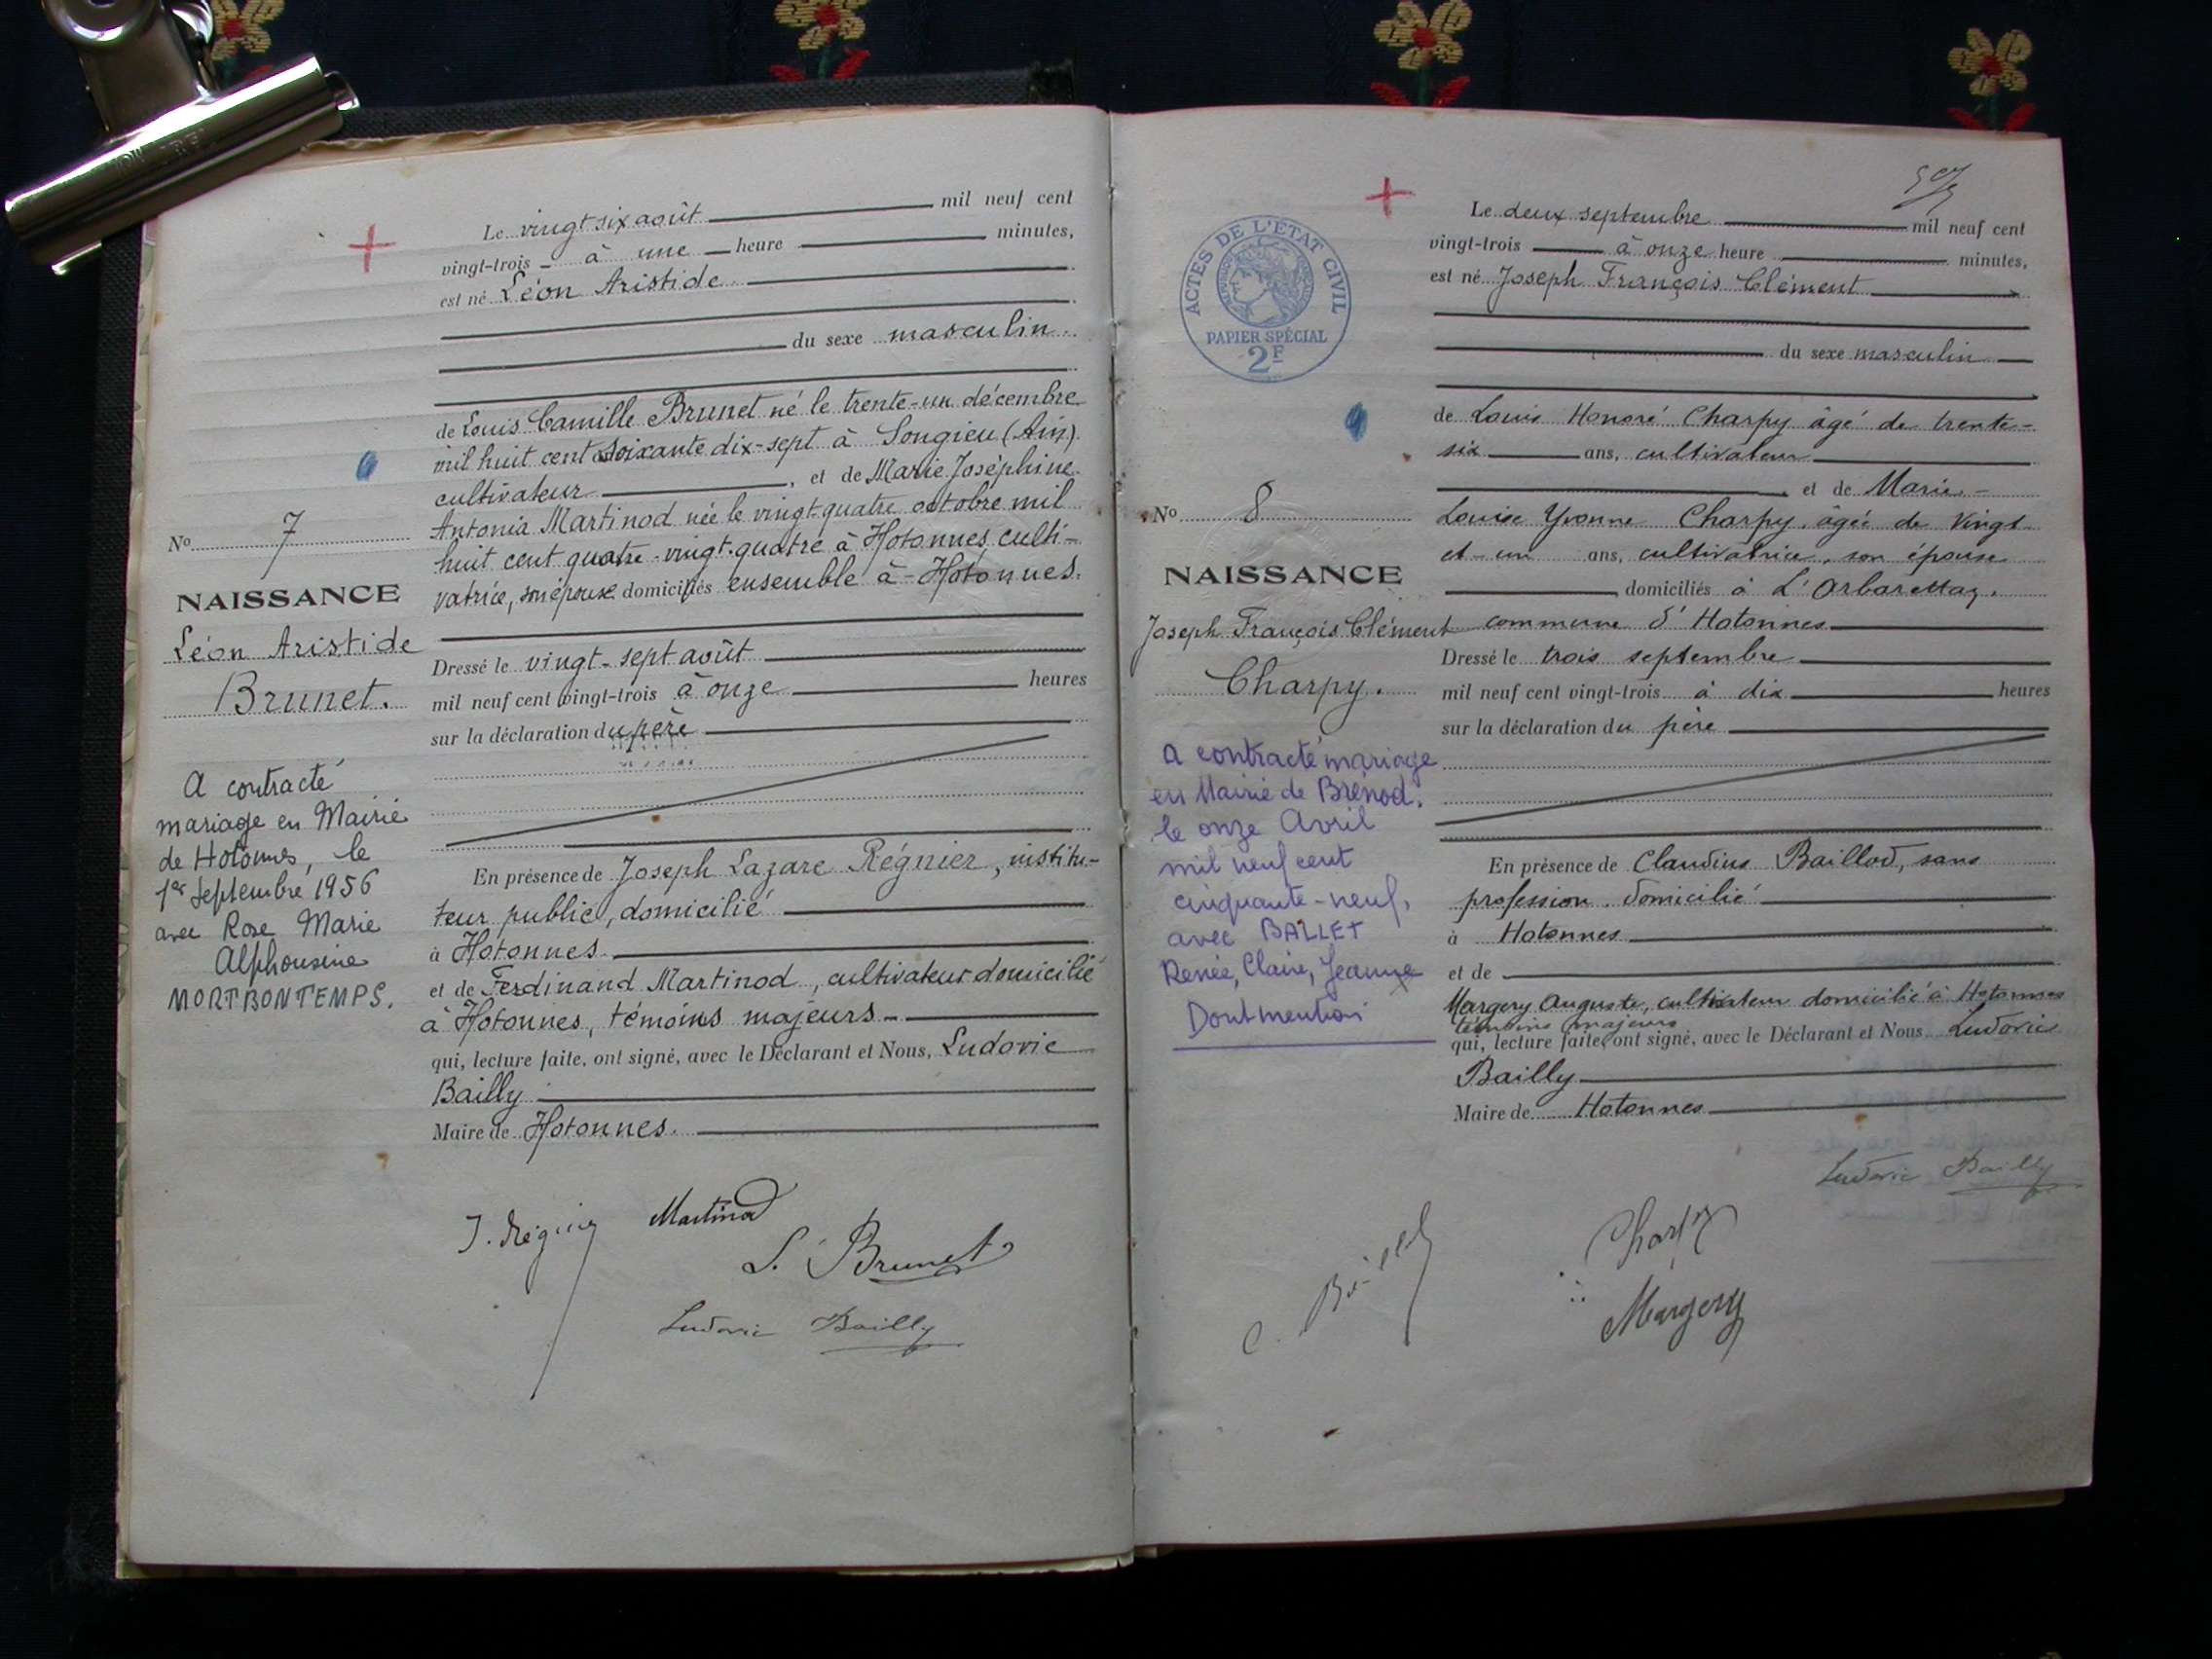 Le vingt six août mil neuf cent
vingt-trois à une heure minutes,
est né Léon Aristide
du sexe masculin
de Louis Camille Brunet né le trente-un décembre
mil huit cent soixante dix-sept à Songieu (Ain)
cultivateur, et de Marie Joséphine
Antonia Martinod née le vingt-quatre octobre mil
huit cent quatre-vingt-quatre à Hotonnes culti-
vatrice, son épouse domiciliés ensemble à Hotonnes.
Dressé le vingt-sept août
mil neuf cent vingt-trois à onze heures
sur la déclaration du père
En présence de Joseph Lazare Régnier, institu-
teur public, domicilié
à Hotonnes
et de Ferdinand Martinod, cultivateur domicilié
à Hotonnes, témoins majeurs
qui, lecture faite, ont signé, avec le Déclarant et Nous, Ludovic
Bailly
Maire de Hotonnes.
J. Régnier Martinod
L. Brunet
Ludovic Bailly
No 7
NAISSANCE
Léon Aristide
Brunet.
A contracté
mariage en Mairie
de Hotonnes, le
1er Septembre 1956
avec Rose Marie
Alphonsine
MORTBONTEMPS.
ACTES DE L'ETAT CIVIL
PAPIER SPÉCIAL
2F
9
No 8
NAISSANCE
Joseph François Clément
Charpy.
a contracté mariage
en Mairie de Brénod.
le onze Avril
mil neuf cent
cinquante-neuf,
avec BALLET
Renée, Claire, Jeanne
Dont mention
Le deux septembre mil neuf cent
vingt-trois à onze heure minutes,
est né Joseph François Clément
du sexe masculin
de Louis Honoré Charpy âgé de trente-
six ans, cultivateur
et de Marie-
Louise Yvonne Charpy, âgée de vingt-
et-un ans, cultivatrice, son épouse
domiciliés à L'Orbarettaz,
commune d'Hotonnes
Dressé le trois septembre
mil neuf cent vingt-trois à dix heures
sur la déclaration du père
En présence de Claudius Baillod, sans
profession, domicilié
à Hotonnes
et de
Margery Auguste, cultivateur domicilié à Hotonnes
témoins majeurs
qui, lecture faite, ont signé, avec le Déclarant et Nous Ludovic
Bailly
Maire de Hotonnes
Ludovic Bailly
Charpy
C. Baillod
Margery